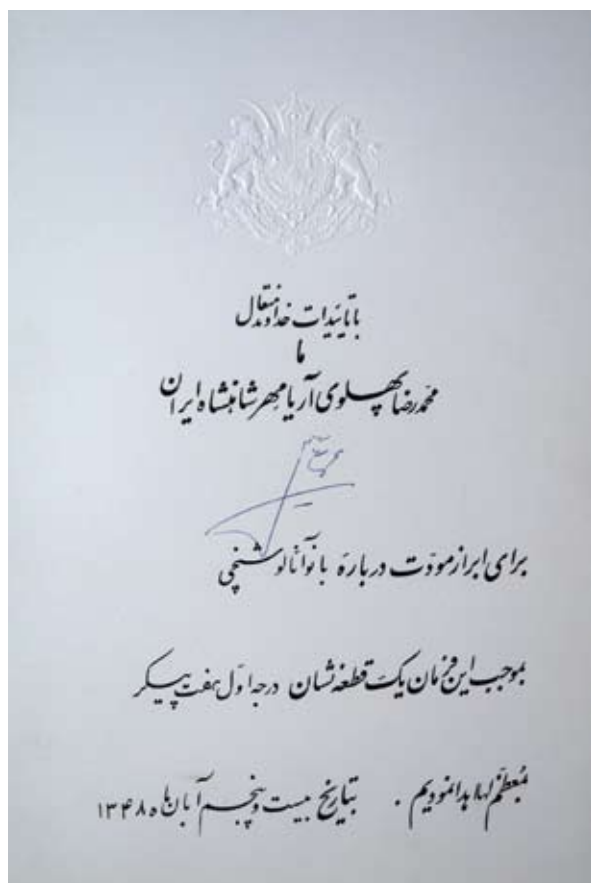 با تائیدات خداوند متعال
ما
محمدرضا پهلوی آریامهر شاهنشاه ایران
برای ابراز مودّت درباره بانو آنا لوشنچی
بموجب این فرمان یک قطعه نشان درجه اوّل هفت پیکر
معظّم لها اهدا نمودیم . بتاریخ بیست و پنجم آبان ماه ۱۳۴۸